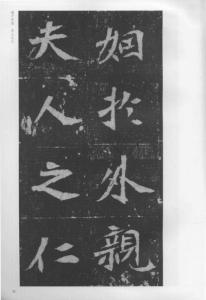 姻於外親
夫人之仁